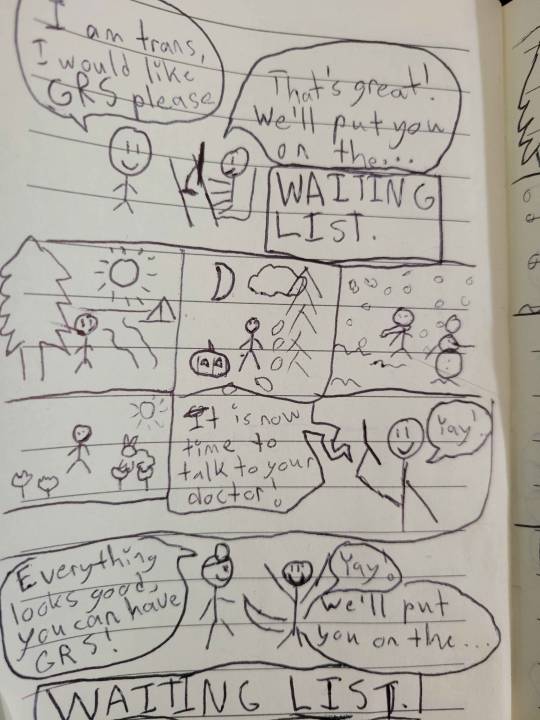 I am trans,
I would like
GRS please
That's great!
We'll put you
on the...
WAITING
LIST.
It is now
time to
talk to your
doctor!
Yay!
Everything
looks good,
you can have
GRS!
Yay!
We'll put
you on the...
WAITING LIST.